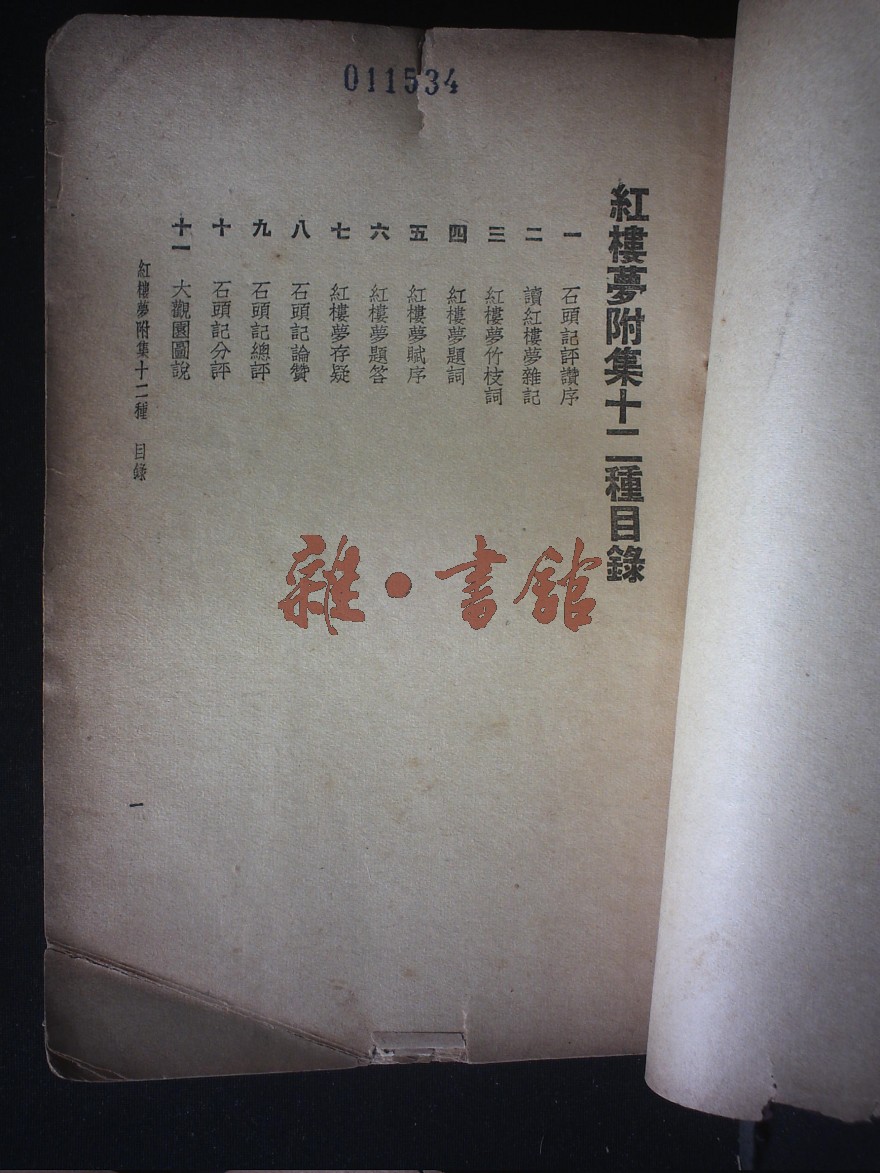 011534
紅樓夢附集十二種目錄
一 石頭記評讚序
二 讀紅樓夢雜記
三 紅樓夢竹枝詞
四 紅樓夢題詞
五 紅樓夢賦序
六 紅樓夢題答
七 紅樓夢存疑
八 石頭記論贊
九 石頭記總評
十 石頭記分評
十一 大觀園圖說
紅樓夢附集十二種 目錄
一
雜·書館